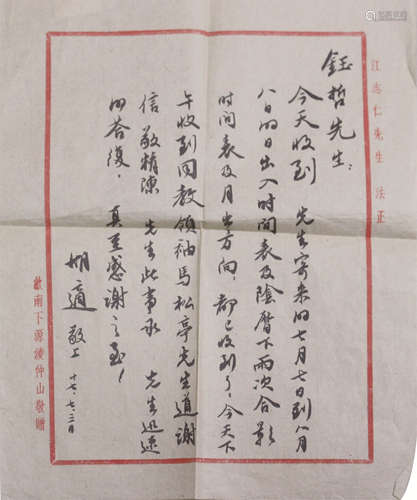 江志仁先生 法正
鈺哲先生：
今天收到 先生寄来的七月七日到八月
八日的日出入时间表及陰曆下两次合影
时间表及月出方向，都已收到了，今天下
午收到回教领袖馬松亭先生道谢
信敬精陳 先生此事承 先生迅速
的答復，真至感谢之至！
胡適 敬上
十七、七、二日
歙南下源凌仲山敬赠